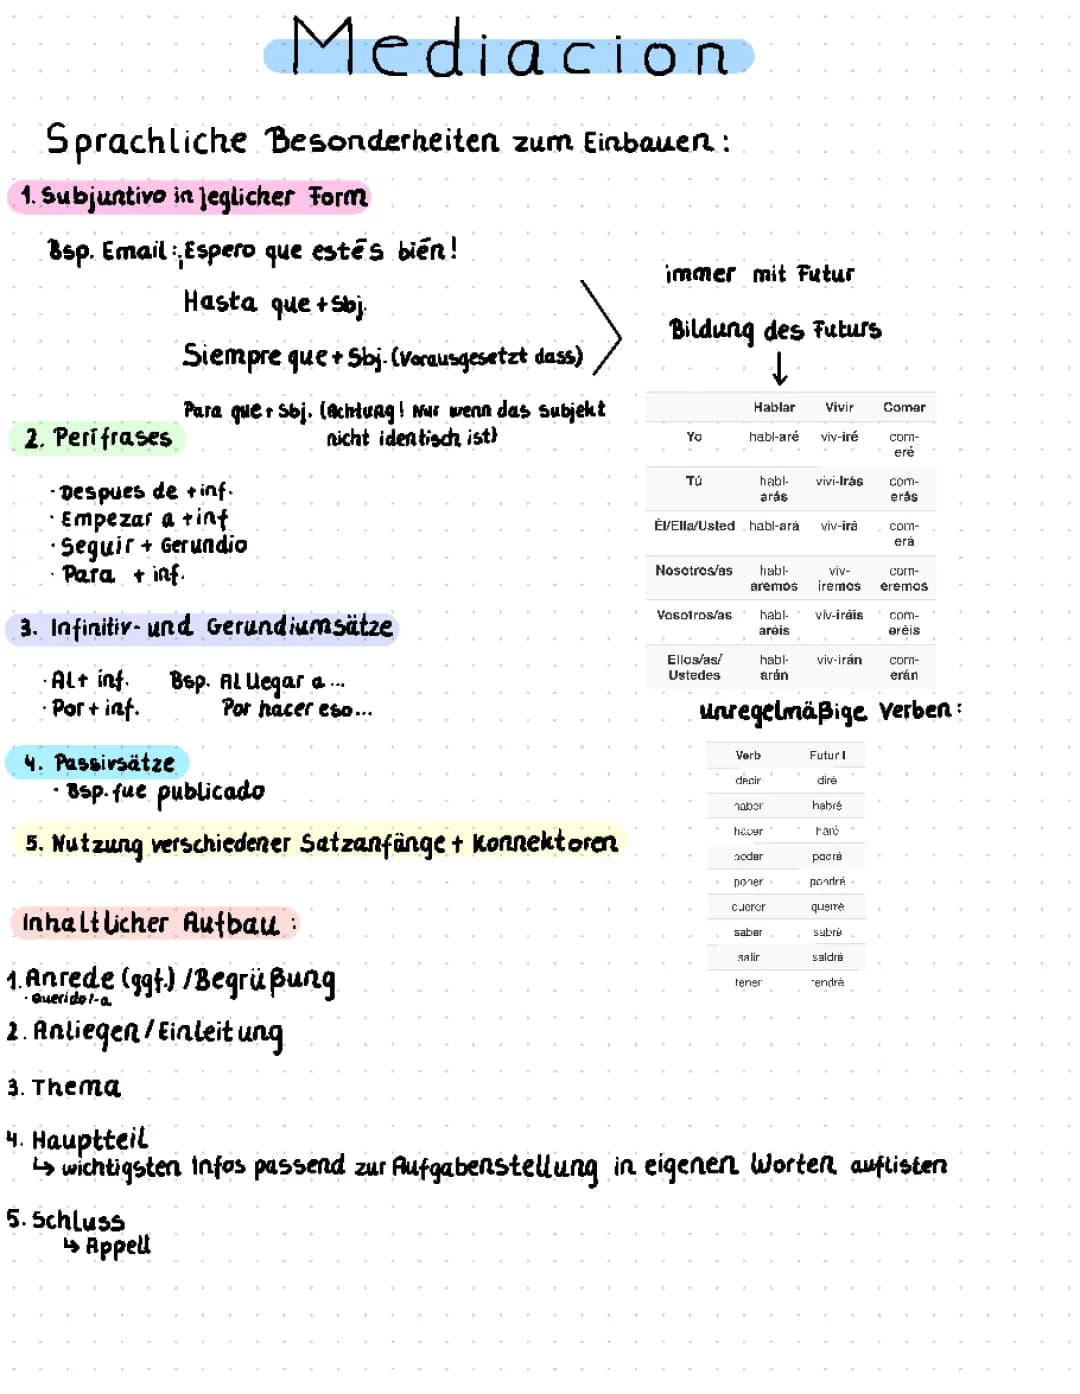 Mediacion
Sprachliche Besonderheiten zum Einbauen:
1. Subjuntivo in jeglicher Form
Bsp. Email: ¡Espero que estés bién!
Hasta que + Sbj.
Siempre que + Sbj. (Vorausgesetzt dass)
Para que + Sbj. (Achtung! Nur wenn das Subjekt
nicht identisch ist)
immer mit Futur
Bildung des Futurs
↓
Hablar Vivir Comer
Yo habl-aré viv-iré com-
eré
Tú habl- vivi-Irás com-
arás erás
Él/Ella/Usted habl-ará viv-irá com-
erá
Nosotros/as habl- viv- com-
aremos iremos eremos
Vosotros/as habl- viv-iréis com-
aréis eréis
Ellos/as/ habl- viv-irán com-
Ustedes arán erán
unregelmäßige Verben:
Verb Futur I
decir diré
haber habré
hacer haré
poder podré
poner pondré
querer querré
saber sabré
salir saldré
tener tendré
2. Perífrases
· Despues de + inf.
· Empezar a + inf
· Seguir + Gerundio
· Para + inf.
3. Infinitiv- und Gerundiumsätze
· Al + inf. Bsp. Al llegar a ...
· Por + inf. Por hacer eso...
4. Passivsätze
· Bsp. fue publicado
5. Nutzung verschiedener Satzanfänge + Konnektoren
Inhaltlicher Aufbau:
1. Anrede (ggf.) / Begrüßung
· Querido/-a
2. Anliegen / Einleitung
3. Thema
4. Hauptteil
↳ wichtigsten Infos passend zur Aufgabenstellung in eigenen Worten auflisten
5. Schluss
↳ Appell